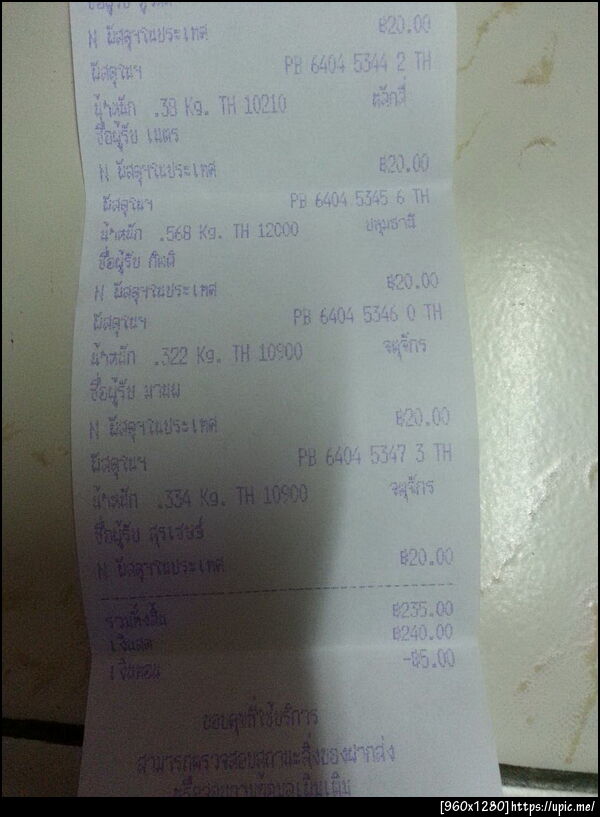 ชื่อผู้รับ
N พัสดุฯในประเทศ ฿20.00
พัสดุในฯ PB 6404 5344 2 TH
น้ำหนัก .38 Kg. TH 10210 หลักสี่
ชื่อผู้รับ เมตร
N พัสดุฯในประเทศ ฿20.00
พัสดุในฯ PB 6404 5345 6 TH
น้ำหนัก .568 Kg. TH 12000 ปทุมธานี
ชื่อผู้รับ กิตติ
N พัสดุฯในประเทศ ฿20.00
พัสดุในฯ PB 6404 5346 0 TH
น้ำหนัก .322 Kg. TH 10900 จตุจักร
ชื่อผู้รับ
N พัสดุฯในประเทศ ฿20.00
พัสดุในฯ PB 6404 5347 3 TH
น้ำหนัก .334 Kg. TH 10900 จตุจักร
ชื่อผู้รับ สุรเชษฐ์
N พัสดุฯในประเทศ ฿20.00
รวมทั้งสิ้น ฿235.00
เงินสด ฿240.00
เงินทอน -฿5.00
ขอบคุณที่ใช้บริการ
สามารถตรวจสอบสถานะสิ่งของฝากส่ง
หรือสอบถามข้อมูลเพิ่มเติม
[960x1280]https://upic.me/